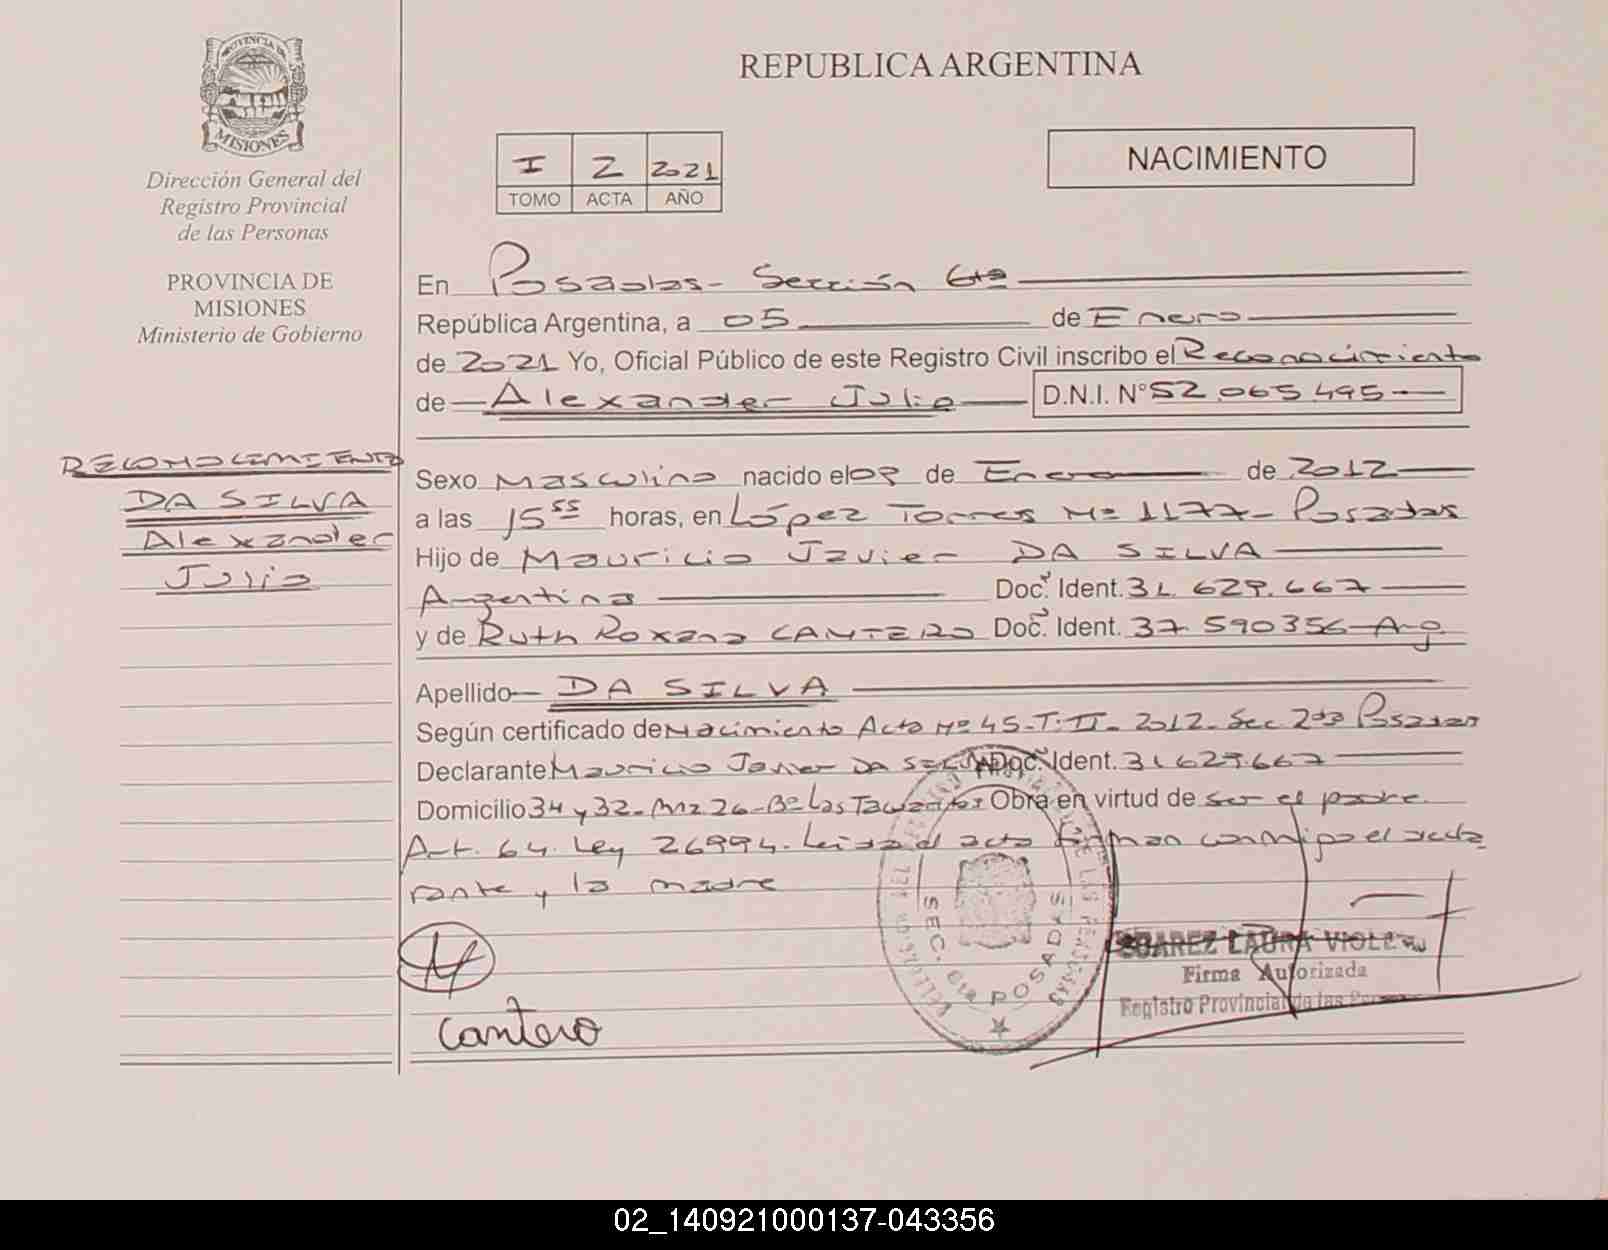 PROVINCIA DE
MISIONES
Dirección General del
Registro Provincial
de las Personas
PROVINCIA DE
MISIONES
Ministerio de Gobierno
RECONOCIMIENTO
DA SILVA
Alexander
Julio
REPUBLICA ARGENTINA
I 2 2021
TOMO ACTA AÑO
NACIMIENTO
En Posadas - Sección 6ta
República Argentina, a 05 de Enero
de 2021 Yo, Oficial Público de este Registro Civil inscribo el Reconocimiento
de Alexander Julio D.N.I. N° 52.065.495
Sexo Masculino nacido el de Enero de 2012
a las 15 55 horas, en López Torres Nº 1177 - Posadas
Hijo de Mauricio Javier DA SILVA
Argentino Doc. Ident. 31.629.667
y de Ruth Roxana CANTERO Doc. Ident. 37.590356 - Arg
Apellido DA SILVA
Según certificado de Nacimiento Acta Nº 45-T:II-2012-Sec 2da Posadas
Declarante Mauricio Javier DA SILVA Doc. Ident. 31629667
Domicilio 34 y 32 - Mz 26 - Bº Las Obra en virtud de ser el padre
Art. 64 Ley 26994. Leida el acta firman conmigo el decla
rante y la madre
Cantero
SEC. 6ta POSADAS
SUAREZ LAURA
Firma Autorizada
Registro Provincial de las Personas
02_140921000137-043356